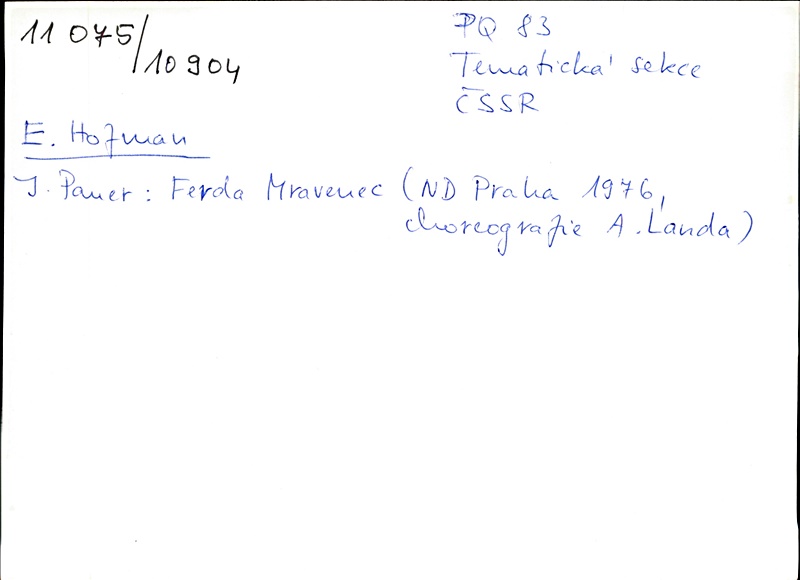 11 075/10904
PQ 83
Tematická sekce
ČSSR
E. Hofman
J. Pauer: Ferda Mravenec (ND Praha 1976,
choreografie A. Landa)